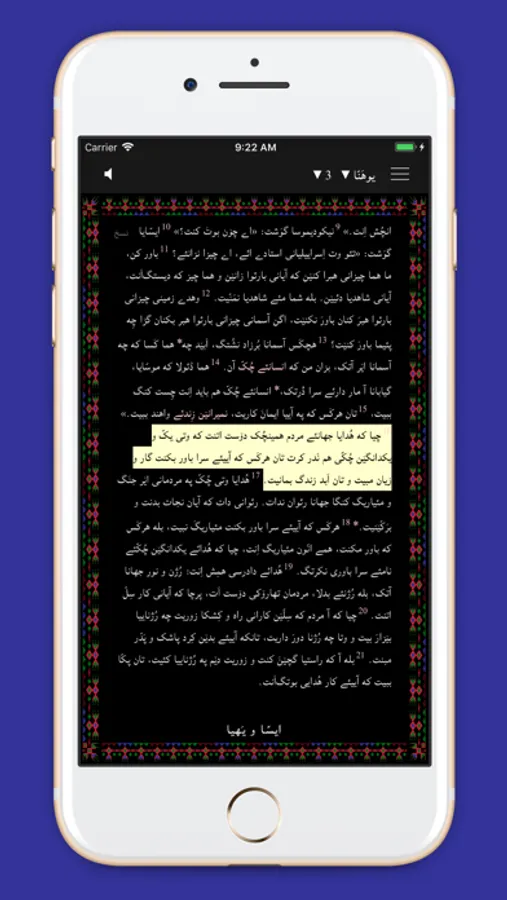 Carrier 9:22 AM
یوهنّا ▼ 3 ▼
انچُش اِنت.» 9 نیکودیموسا گَوَشت: «اے چوَن بوتَ کنت؟» 10 ایسّایا
گَوَشت: «تئو وت اِسراییلیانی استادے ائے، اے چیزا نزانئے؟ 11 باور کن،
ما هما چیزانی هبرا کنێن که آیانی بارئوا زانێن و هما چیز که دیستگ‌اَنت،
آیانی شاهدیا دئیێن. بله شما مئے شاهدیا نمنّێت. 12 وهدے زمینی چیزانی
بارئوا هبرَ کنان باورَ نکنێت، اگن آسمانی چیزانی بارئوا هبر بکنان گڑا چه
پئیما باورَ کنێت؟ 13 هچکَس آسمانا بُرزاد نشُتگ، اَبێد چه* هما کَسا که چه
آسمانا اێر آتک، بزان من که انسانئے چُکّ آن. 14 هما دَئولا که موسّایا،
گیابانا آ مار دارئے سرا دْرتک،* انسانئے چُکّ هم باید اِنت چست کنگ
ببیت، 15 تان هرکَس که په آییا ایمانَ کاریت، نمیرانێن زندئے واهند ببیت.»
چیا که هُدایا جهانئے مردم همینچُک دوَست اتنت که وتی یکّ و
یکدانگێن چُکّی هم نَدر کرت تان هرکَس که آییئے سرا باور بکنت گار و
زیان مبیت و تان اَبد زندگ بمانیت. 17 هُدایا وتی چُکّ په مردمانی اێر جنَگ
و مئیاریگ کنگا جهانا رئوان ندات، رئوانی دات که آیان نجات بدنت و
برَکّێنیت.* 18 هرکَس که آییئے سرا باور بکنت مئیاریگَ نبیت، بله هرکَس
که باور مکنت، همے انّون مئیاریگ اِنت، چیا که هُدائے یکدانگێن چُکّئے
نامئے سرا باوری نکرتگ. 19 هُدائے دادرسی همِش اِنت: رُژن و نور جهانا
آتک، بله رُژنئے بدلا، مردمان تهارۆکی دوَست اَت، پرچا که آیانی کار سِلّ
اتنت. 20 چیا که آ مردم که سِلّێن کارانی راه و کِشکا زوریت چه رُژناییا
بێزارَ بیت و وتا چه رُژنا دورَ داریت، تانکه آییئے بدێن کِرد پاشک و پَدّر
مبنت. 21 بله آ که راستیا گچێنَ کنت و زوریت دێم په رُژناییا کئیت، تان پکّا
ببیت که آییئے کار هُدایی بوتگ‌اَنت.
ایسّا و یَهیا